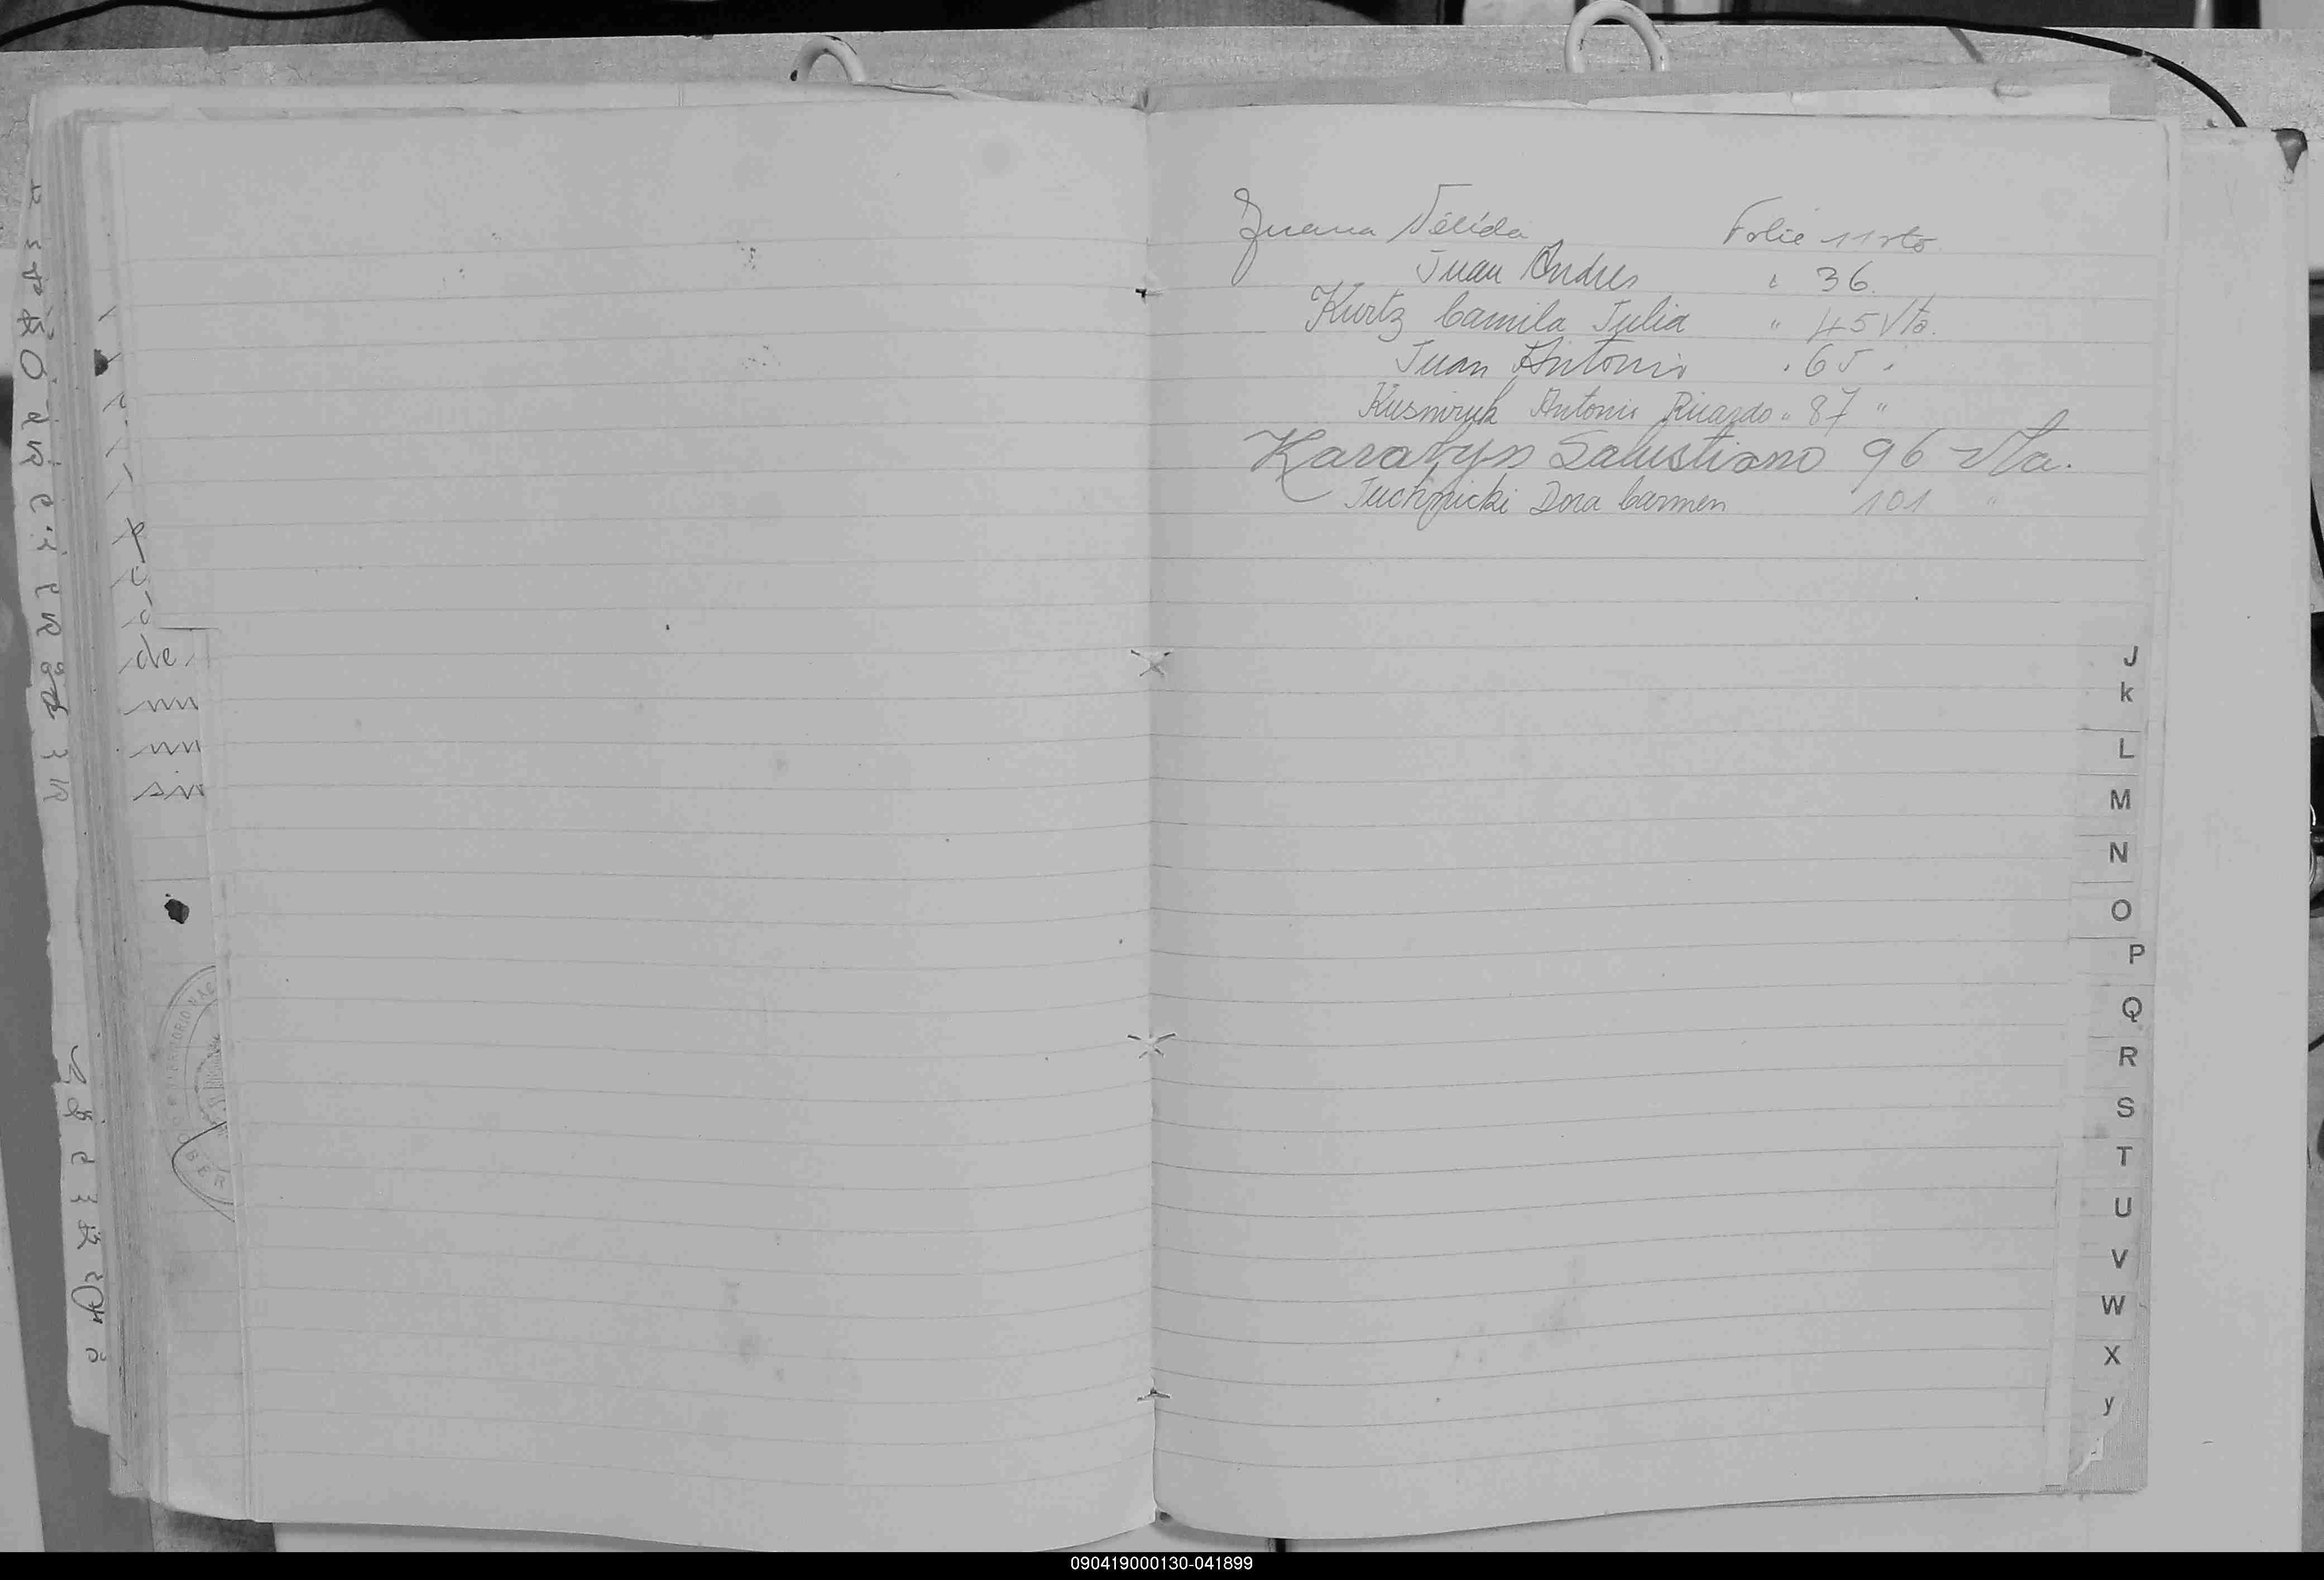 Juana Nélida Folio 11 vto.
Juan Andres " 36.
Kurtz Camila Julia " 45 Vto.
Juan Antonio " 65 "
Kusniruk Antonio Ricardo " 87 "
Karabyn Salustiano 96 vta.
Juchnicki Dora Carmen 101 "
de
sin
J
k
L
M
N
O
P
Q
R
S
T
U
V
W
X
y
090419000130-041899